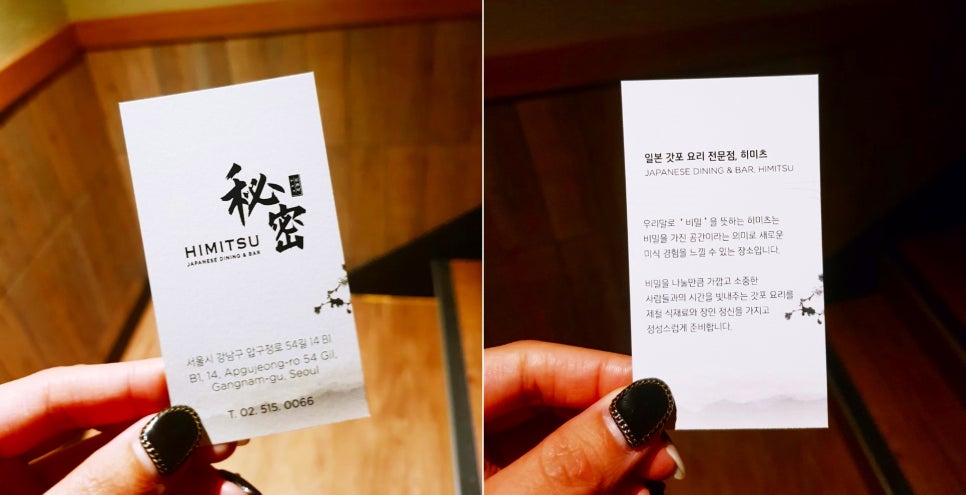 秘密
HIMITSU
JAPANESE DINING & BAR
서울시 강남구 압구정로 54길 14 B1
B1, 14, Apgujeong-ro 54 Gil,
Gangnam-gu, Seoul
T. 02. 515. 0066
일본 갓포 요리 전문점, 히미츠
JAPANESE DINING & BAR, HIMITSU
우리말로 ‘비밀’을 뜻하는 히미츠는
비밀을 가진 공간이라는 의미로 새로운
미식 경험을 느낄 수 있는 장소입니다.
비밀을 나눌만큼 가깝고 소중한
사람들과의 시간을 빛내주는 갓포 요리를
제철 식재료와 장인 정신을 가지고
정성스럽게 준비합니다.